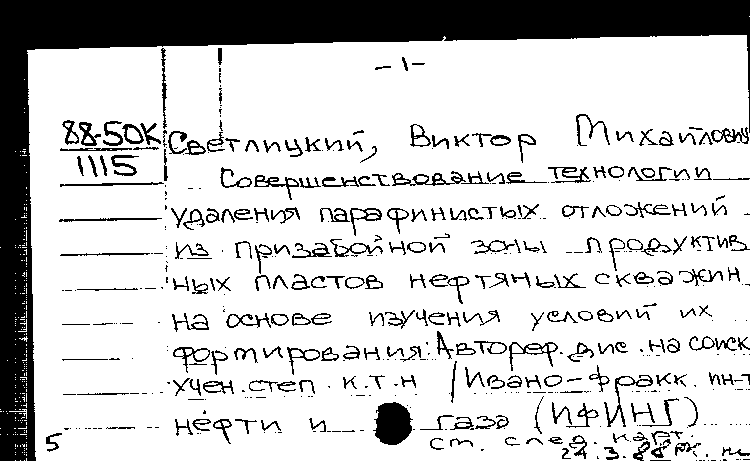 -1-
88-50К Светлицкий, Виктор Михайлович
1115
Совершенствование технологии
удаления парафинистых отложений
из призабойной зоны продуктив
ных пластов нефтяных скважин
на основе изучения условий их
формирования: Автореф. дис. на соиск
учен. степ. к.т.н / Ивано-фракк. ин-т
нефти и газа (ИФИНГ)
5 см. след. карт.
24.3.88